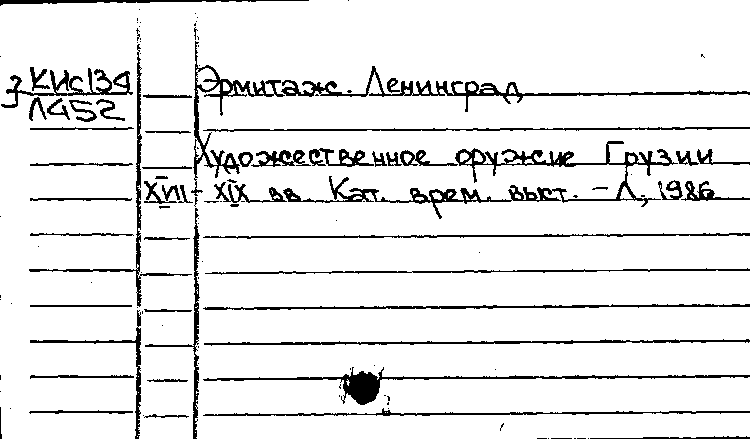 КИс134 Эрмитаж. Ленинград
Л452
Художественное оружие Грузии
XVII - XIX вв. Кат. врем. выст. - Л., 1986